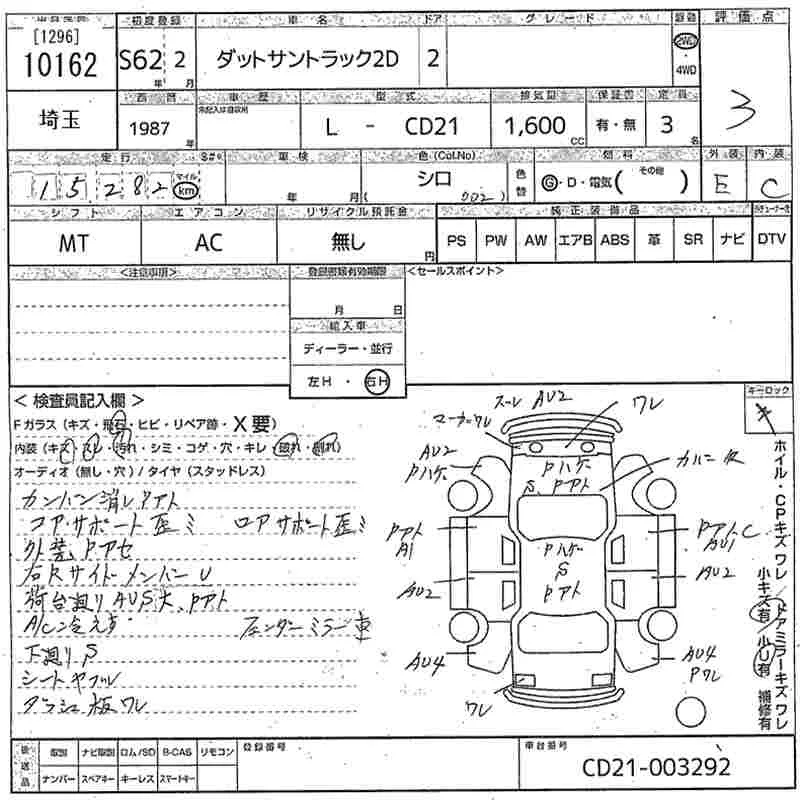 初度登録 車名 ドア グレード 駆動 評価点
[1296]
10162
S62 2
年 月
ダットサントラック2D
2
2WD・4WD
3
埼玉
西暦 車歴 型式 排気量 保証書 定員
1987
年
未記入は自家用
L - CD21
1,600
CC
有・無
3
名
走行 車検 色(Col.No) 燃料 外装 内装
15,282
マイル
km
年 月
シロ
(002)
色替
G・D・電気( その他 )
E
C
シフト エアコン リサイクル預託金 純正装備品
MT
AC
無し
円
PS PW AW エアB ABS 革 SR ナビ DTV
<注意事項>
登録書類有効期限
<セールスポイント>
月 日
輸入車
ディーラー・並行
左H・右H
<検査員記入欄>
Fガラス(キズ・飛石・ヒビ・リペア跡・X要)
内装(キズ・スレ・汚れ・シミ・コゲ・穴・キレ・破れ・割れ)
オーディオ(無し・穴)/タイヤ(スタッドレス)
カンバン消しPアト
コアサポート歪ミ ロアサポート歪ミ
外装、Pアセ
右Rサイドメンバー U
荷台廻りAUS大、Pアト
A/C冷えず フェンダーミラー車
下廻り S
シートヤブレ
ダッシュ板ワレ
スーレ AU2
ワレ
マーカーワレ
AU2
Pハゲ
Pハゲ
S、Pアト
Pアト
A1
Pハゲ
S
Pアト
PアトC
AU1
AU2
AU2
AU4
AU4
Pワレ
ワレ
キーロック
キ
ホイル・CPキズワレ/ドアミラーキズワレ
小キズ有/小U有 補修有
後送品
取説 ナビ取説 ロム/SD B-CAS リモコン
ナンバー スペアキー キーレス スマートキー
登録番号
車台番号
CD21-003292